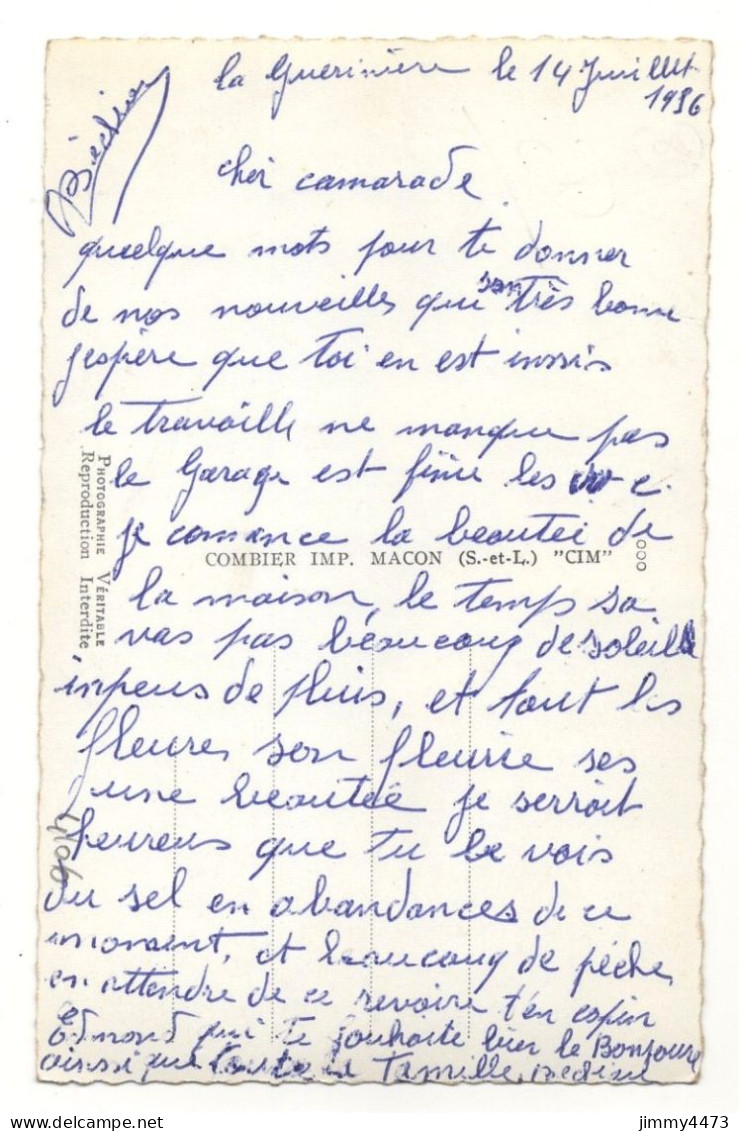 la Guerinière le 14 Juillet
1956
cher camarade
quelque mots pour te donner
de nos nouveilles qui son très bonne
jespère que toi en est inssis
le travaille ne manque pas
le Garage est finie les
je comance la beautei de
la maison, le temps sa
vas pas beaucoup de soleille
inpeus de pluis, et tout les
fleures son fleurie ses
une beautée je serroit
heureus que tu le vois
du sel en abandances de ce
moment, et beaucoup de pêche
en attendre de ce revoire t'en copin
Edmond qui te souhaite bien le Bonjoure
ainsi que toute la Famille
4106
PHOTOGRAPHIE VÉRITABLE
Reproduction Interdite
COMBIER IMP. MACON (S.-et-L.) "CIM"
jimmy4473